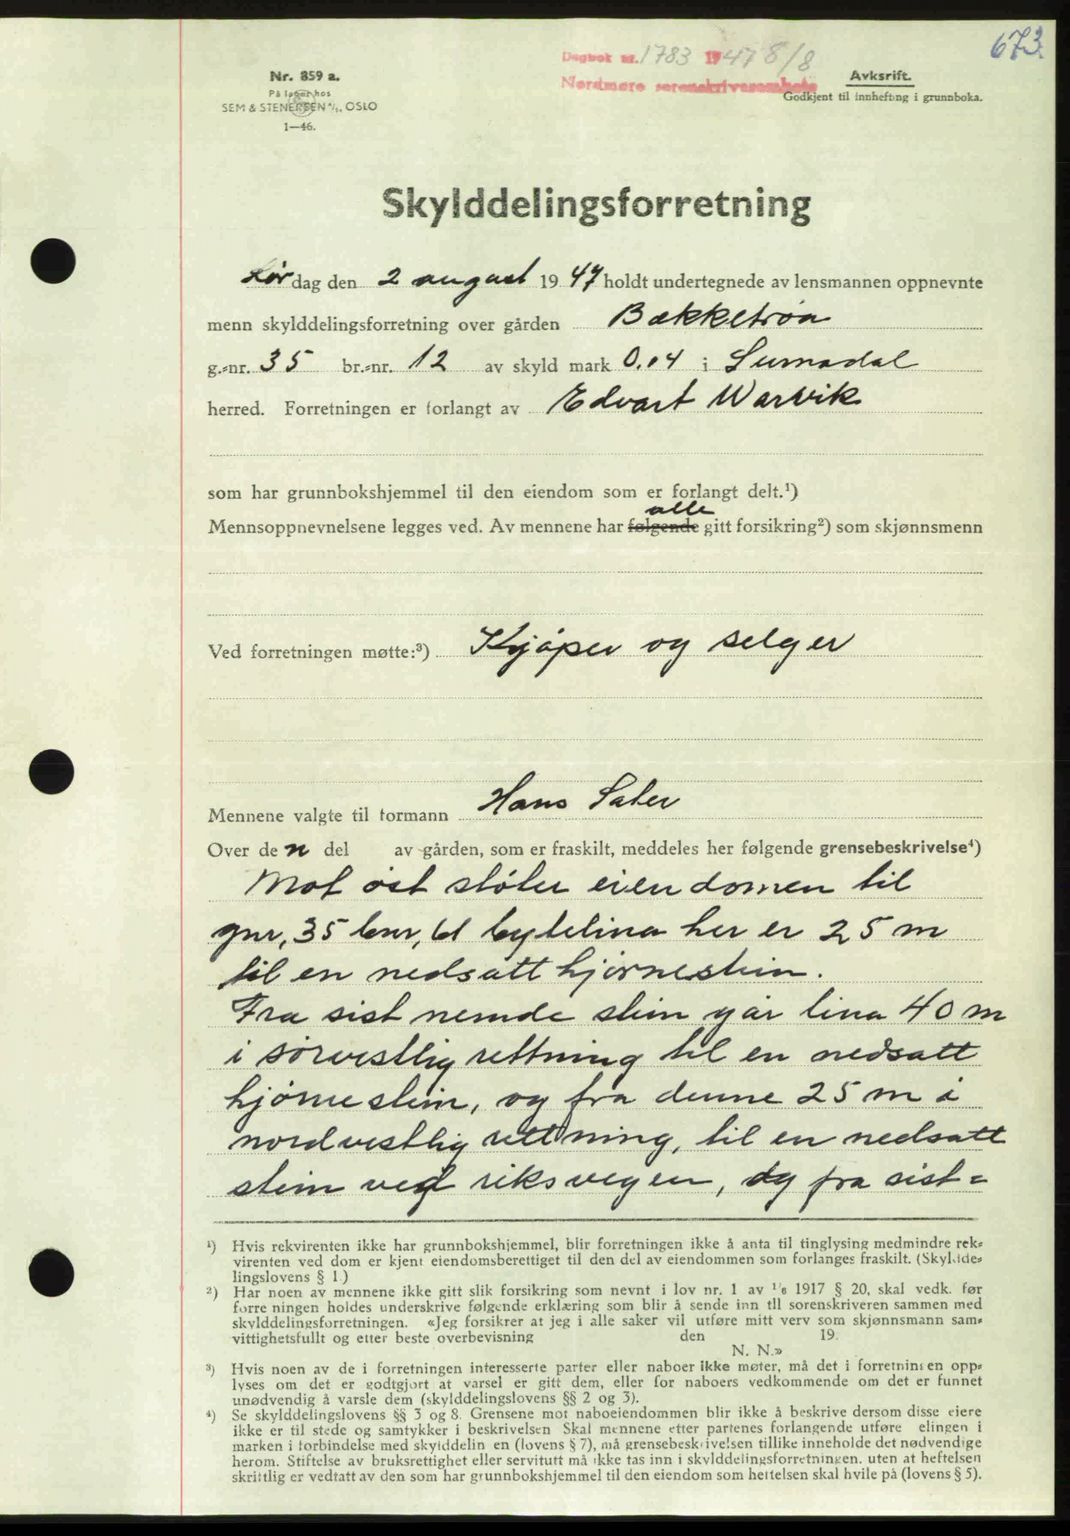 673.
Dagbok nr. 1783 1947 8/8
Nordmøre sorenskriverembete
Nr. 859 a.
På lager hos
SEM & STENERSEN A/S, OSLO
1—46.
Avskrift.
Godkjent til innhefting i grunnboka.
Skylddelingsforretning
Lørdag den 2 august 1947 holdt undertegnede av lensmannen oppnevnte
menn skylddelingsforretning over gården Bækketrøa
g.-nr. 35 br.-nr. 12 av skyld mark 0.04 i Surnadal
herred. Forretningen er forlangt av Edvart Warvik
som har grunnbokshjemmel til den eiendom som er forlangt delt.¹)
alle
Mennsoppnevnelsene legges ved. Av mennene har følgende gitt forsikring²) som skjønnsmenn
Ved forretningen møtte:³) Kjøper og selger
Mennene valgte til formann Hans Sæter
Over den del av gården, som er fraskilt, meddeles her følgende grensebeskrivelse⁴)
Mot øst støter eiendomen til
gnr, 35 bnr, 61 bytelina her er 25 m
til en nedsatt hjørnestein.
Fra sist nemde stein går lina 40 m
i sørvestlig rettning til en nedsatt
hjørnestein, og fra denne 25 m i
nordvestlig rettning, til en nedsatt
stein ved riksvegen, og fra sist=
¹) Hvis rekvirenten ikke har grunnbokshjemmel, blir forretningen ikke å anta til tinglysing medmindre rek-
virenten ved dom er kjent eiendomsberettiget til den del av eiendommen som forlanges fraskilt. (Skyldde-
lingslovens § 1.)
²) Har noen av mennene ikke gitt slik forsikring som nevnt i lov nr. 1 av 1/6 1917 § 20, skal vedk. før
forretningen holdes underskrive følgende erklæring som blir å sende inn til sorenskriveren sammen med
skylddelingsforretningen. «Jeg forsikrer at jeg i alle saker vil utføre mitt verv som skjønnsmann sam-
vittighetsfullt og etter beste overbevisning den 19.
N. N.»
³) Hvis noen av de i forretningen interesserte parter eller naboer ikke møter, må det i forretningen opp-
lyses om det er godtgjort at varsel er gitt dem, eller for naboers vedkommende om det er funnet
unødvendig å varsle dem (skylddelingslovens §§ 2 og 3).
⁴) Se skylddelingslovens §§ 3 og 8. Grensene mot naboeiendommen blir ikke å beskrive dersom disse eiere
ikke er til stede og samtykker i beskrivelsen Skal mennene etter partenes forlangende utføre elingen i
marken i forbindelse med skylddelingen (lovens § 7), må grensebeskrivelsen tillike inneholde det nødvendige
herom. Stiftelse av bruksrettighet eller servitutt må ikke tas inn i skylddelingsforretningen. uten at heftelsen
skriftlig er vedtatt av den som har grunnbokshjemmel til den eiendom som heftelsen skal hvile på (lovens § 5).